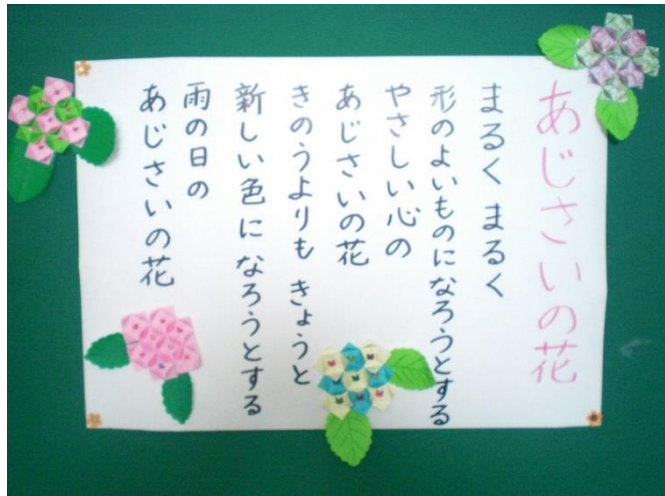 あじさいの花
まるく まるく
形のよいものになろうとする
やさしい心の
あじさいの花
きのうよりも きょうと
新しい色に なろうとする
雨の日の
あじさいの花